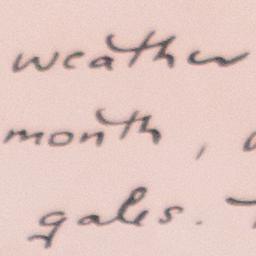 weather
month,
gales.